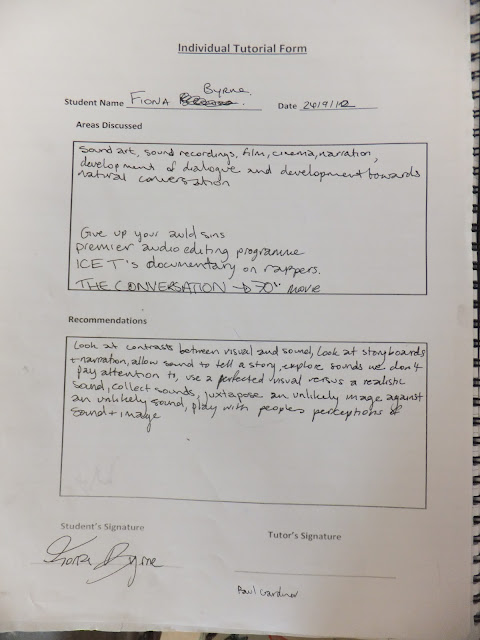 Individual Tutorial Form
Byrne.
Student Name FIONA Date 24/9/12
Areas Discussed
Sound art, sound recordings, film, cinema, narration,
development of dialogue and development towards
natural conversation
Give up your auld sins
premier audio editing programme
ICE T's documentary on rappers.
THE CONVERSATION → 70's movie
Recommendations
Look at contrasts between visual and sound, Look at storyboards
+ narration, allow sound to tell a story, explore sounds we don't
pay attention to, use a perfected visual versus a realistic
sound, collect sounds, juxtapose an unlikely image against
an unlikely sound, play with peoples perceptions of
sound + image
Student's Signature
Tutor's Signature
Fiona Byrne
Paul Gardiner